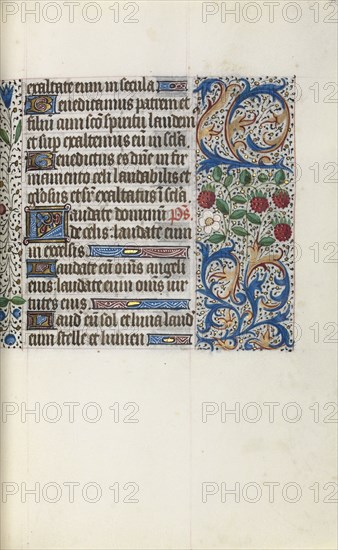 exaltate eum in secula
Benedicamus patrem et
filiū cum sc̄o spiritu laudem
et sup exaltemus eū in sc̄la
Benedictus es dn̄e in fir
mamento celi laudabilis et
gl'osus et sr̄ exaltatus in sc̄la
Laudate dominū ps.
de celis laudate eum
in excelsis
Laudate eū om̄s angeli
eius laudate eum om̄s uir
tutes eius
Laud eū sol et luna laud
eum stelle et lumen
PHOTO 12